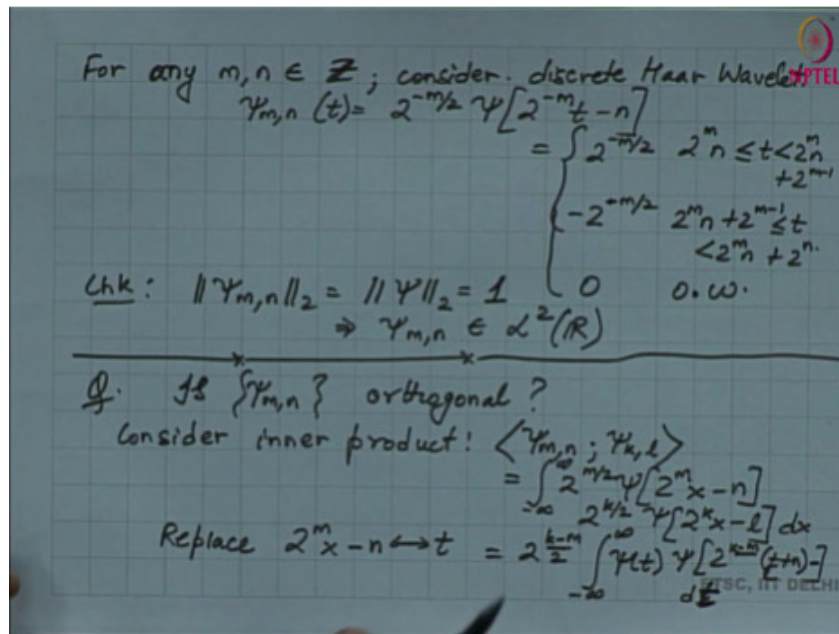 For any m,n ∈ Z; consider. discrete Haar Wavelet
NPTEL
Ψm,n (t) = 2^{-m/2} Ψ[2^{-m}t - n]
= { 2^{-m/2} 2^m n ≤ t < 2^m n + 2^{m-1}
-2^{-m/2} 2^m n + 2^{m-1} ≤ t < 2^m n + 2^n.
0 o.w.
Chk: ||Ψm,n||_2 = ||Ψ||_2 = 1
⇒ Ψm,n ∈ L^2(R)
Q. Is {Ψm,n} orthogonal?
Consider inner product: <Ψm,n ; Ψk,l>
= ∫_{-∞}^{∞} 2^{m/2} Ψ[2^m x - n]
2^{k/2} Ψ[2^k x - l] dx
Replace 2^m x - n ↔ t = 2^{(k-m)/2} ∫_{-∞}^{∞} Ψ(t) Ψ[2^{k-m}(t+n) - ]
dt
ETSC, IIT DELHI